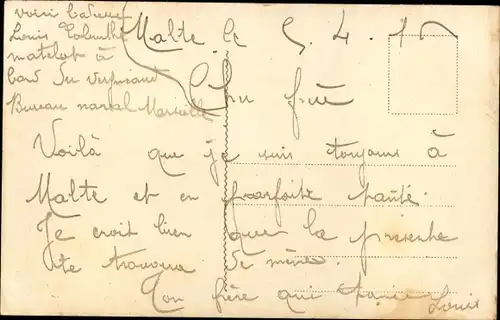 voici l'adresse
Louis
matelot à
bord du
Bureau naval Marseille
Malte le 5. 4. 1
Cher frère
Voilà que je suis toujours à
Malte et en parfaite santé.
Je croit bien que la présente
te trouvera de même.
Ton frère qui Louis